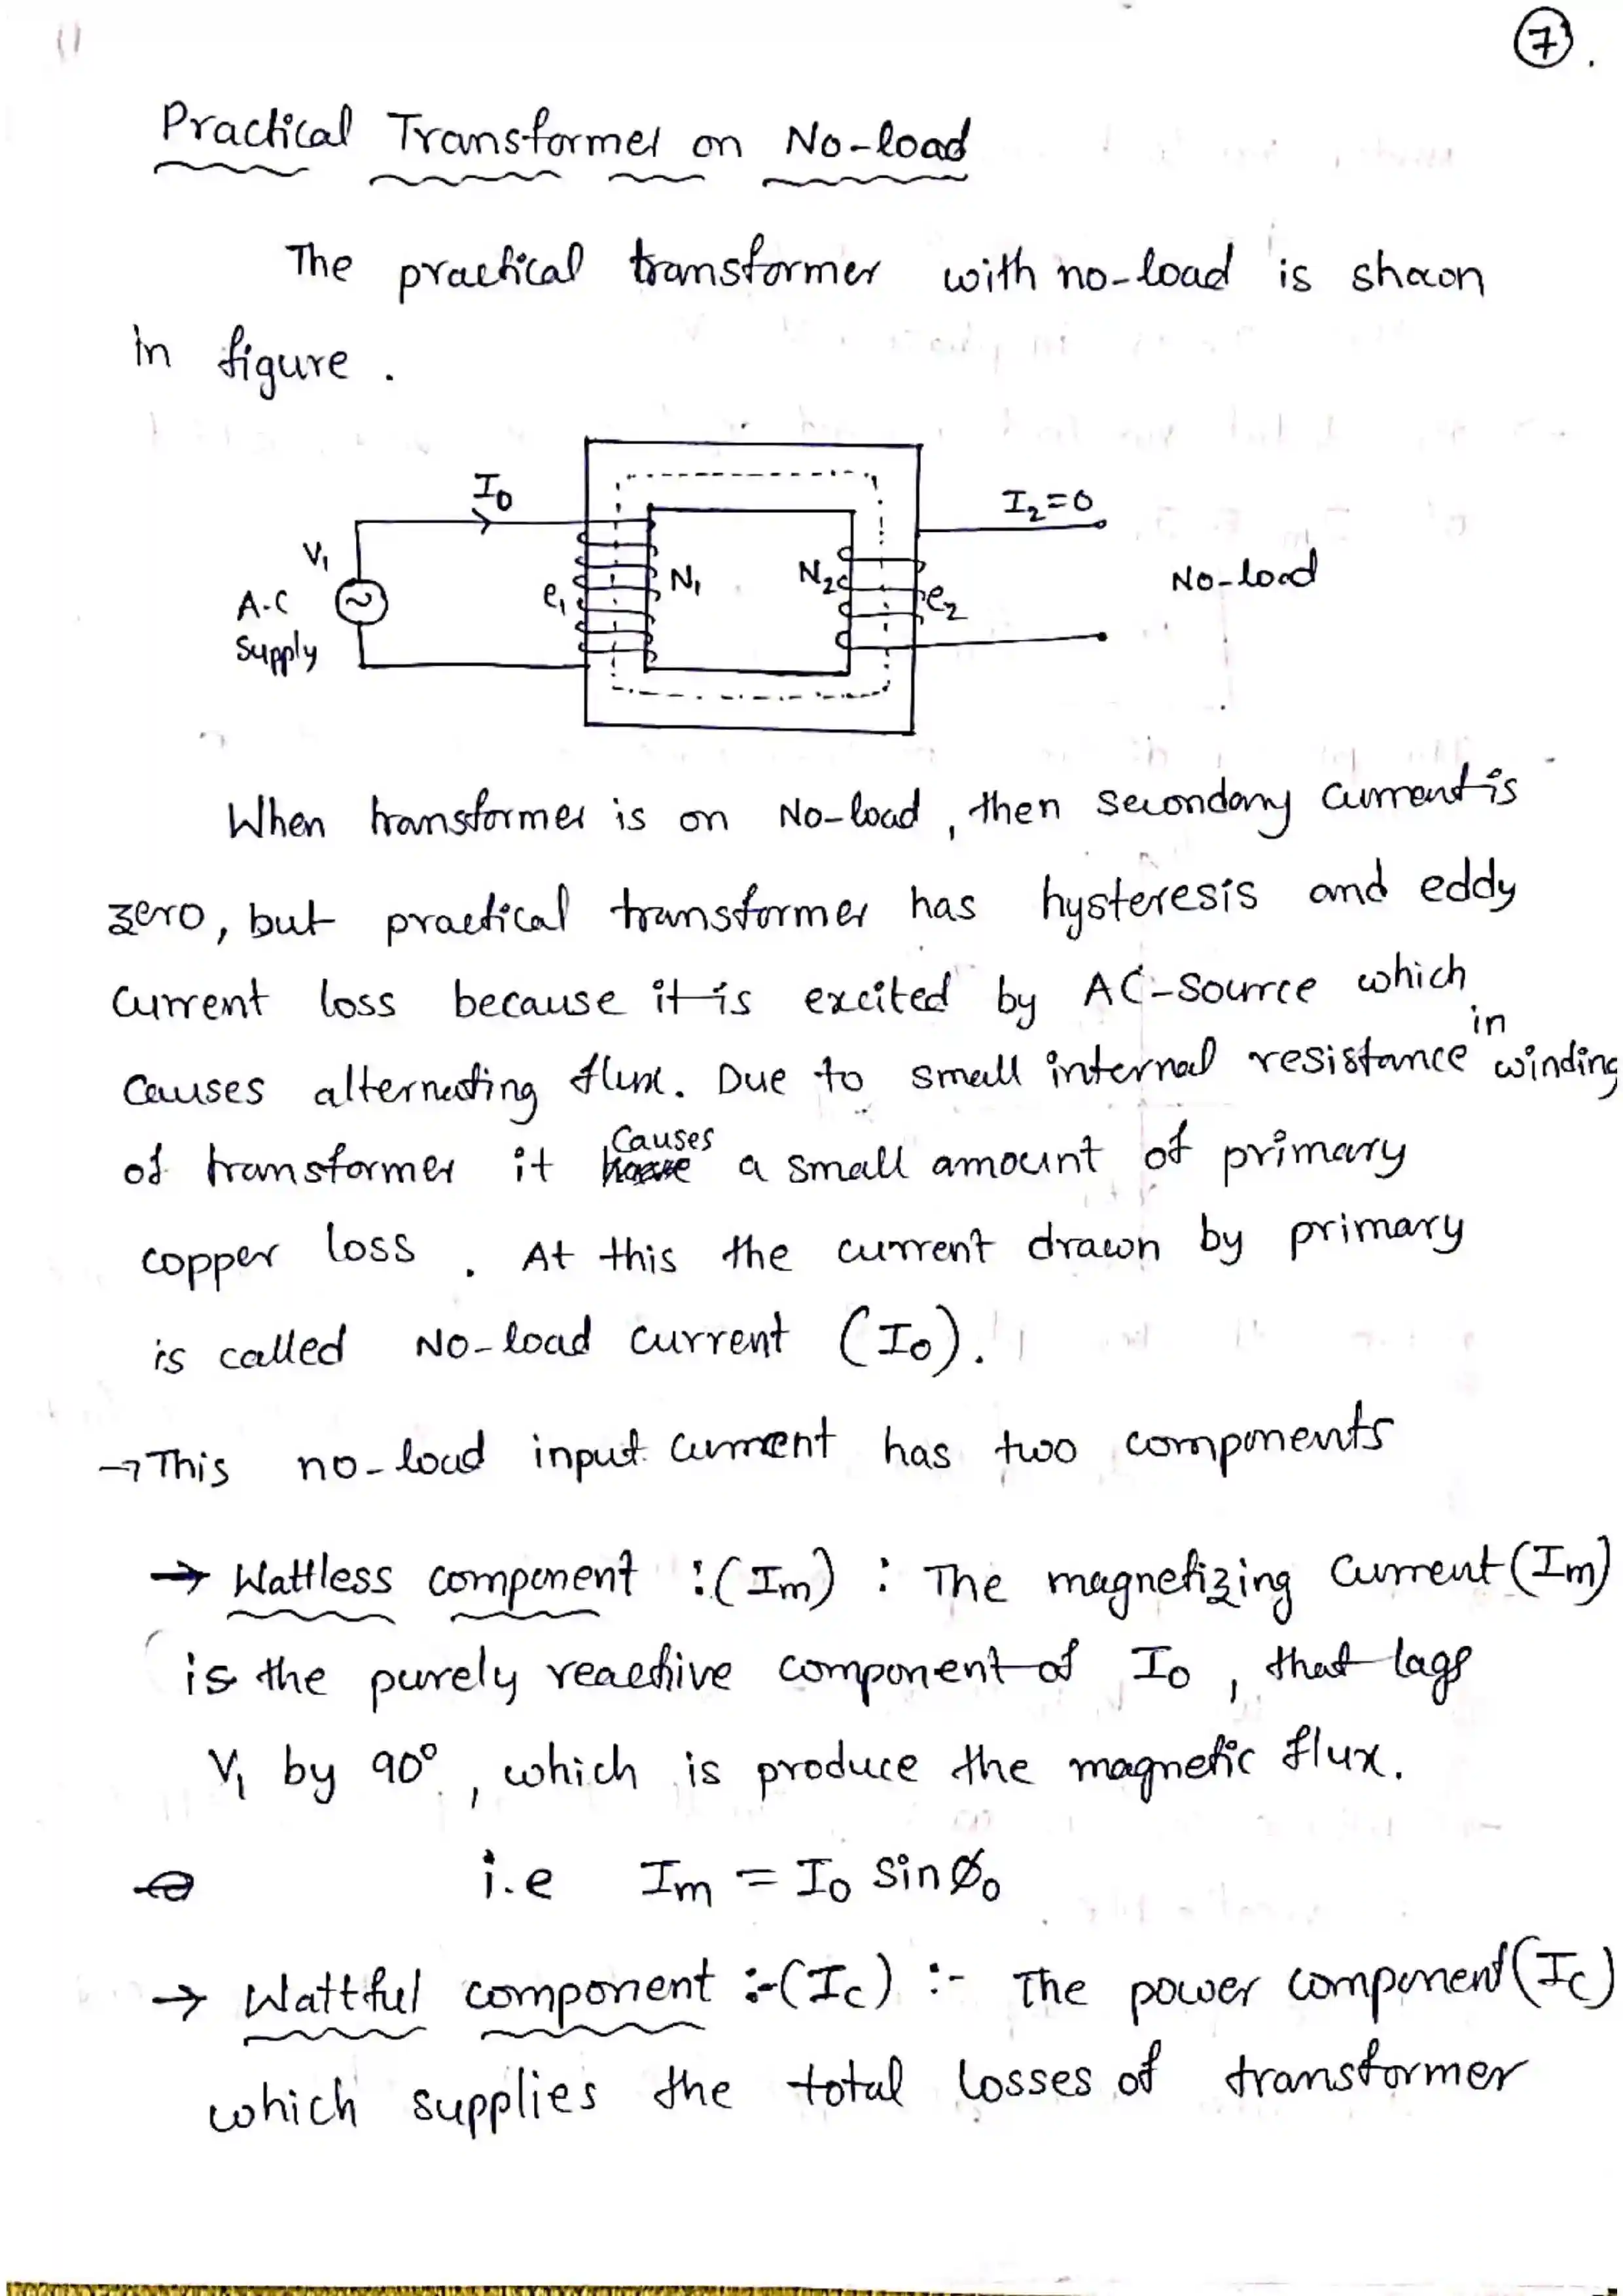 7.
Practical Transformer on No-load
The practical transformer with no-load is shown
in figure.
I0
I2=0
V1
A.C
Supply
e1
N1
N2
e2
No-load
When transformer is on No-load, then secondary current is
zero, but practical transformer has hysteresis and eddy
current loss because it is excited by AC-source which
causes alternating flux. Due to small internal resistance in winding
of transformer it causes a small amount of primary
copper loss. At this the current drawn by primary
is called No-load current (I0).
→ This no-load input current has two components
→ Wattless component :(Im) : The magnetizing current (Im)
is the purely reactive component of I0, that lags
V1 by 90°, which is produce the magnetic flux.
i.e Im = I0 sin ø0
→ Wattful component :-(Ic) :- The power component (Ic)
which supplies the total losses of transformer